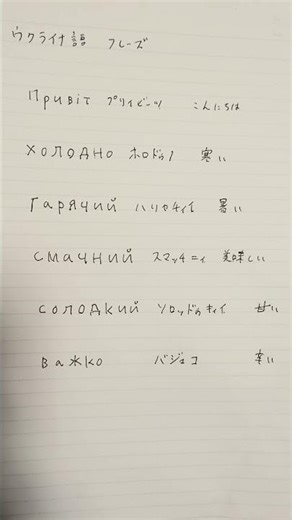 ウクライナ語 フレーズ
Привіт プリィビーツ こんにちは
холодно ホロドゥノ 寒い
Гарячий ハリャチィイ 暑い
смачний スマッチニィ 美味しい
солодкий ソロッドゥキィイ 甘い
важко バジュコ 辛い